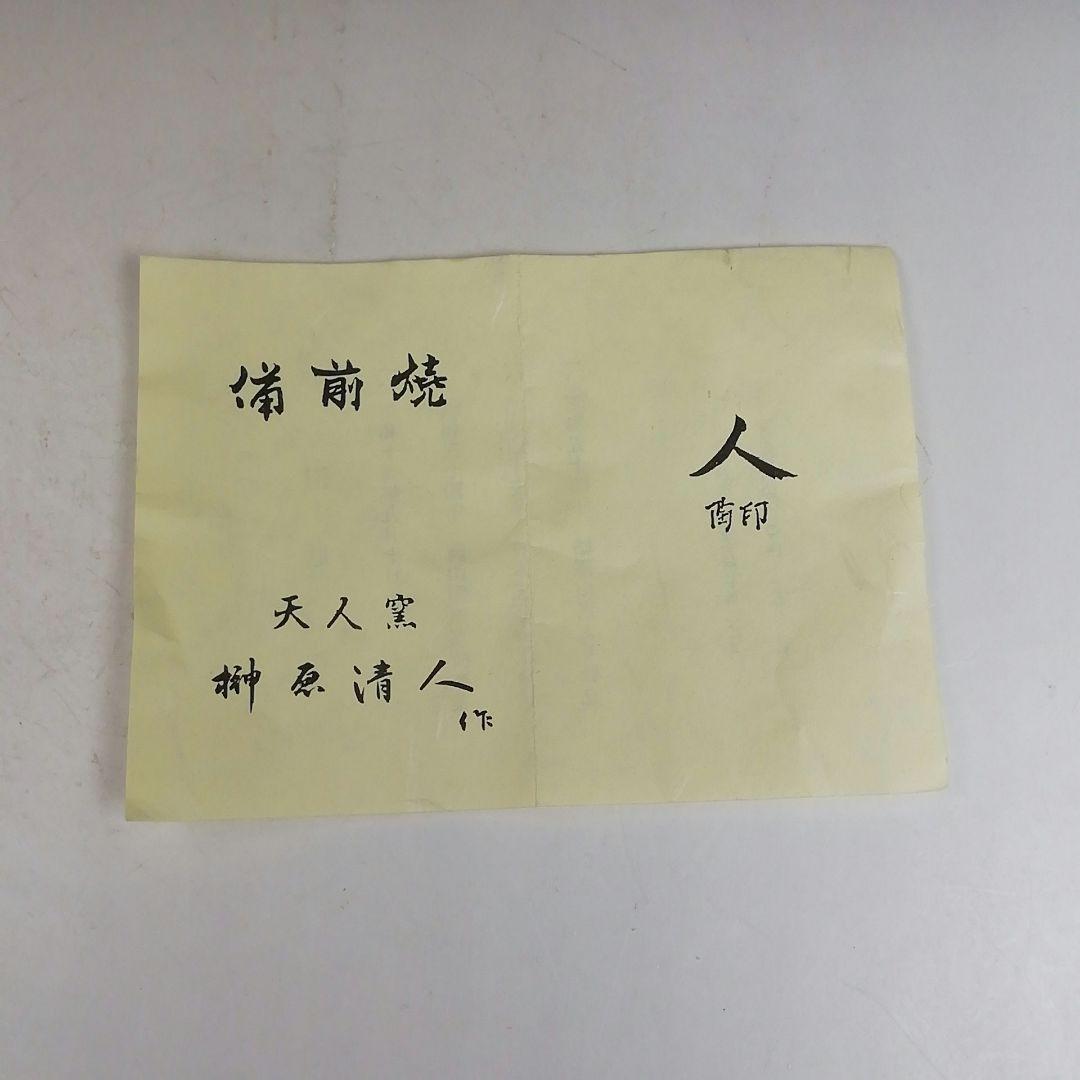 備前焼
天人窯
榊原清人
作
人
陶印